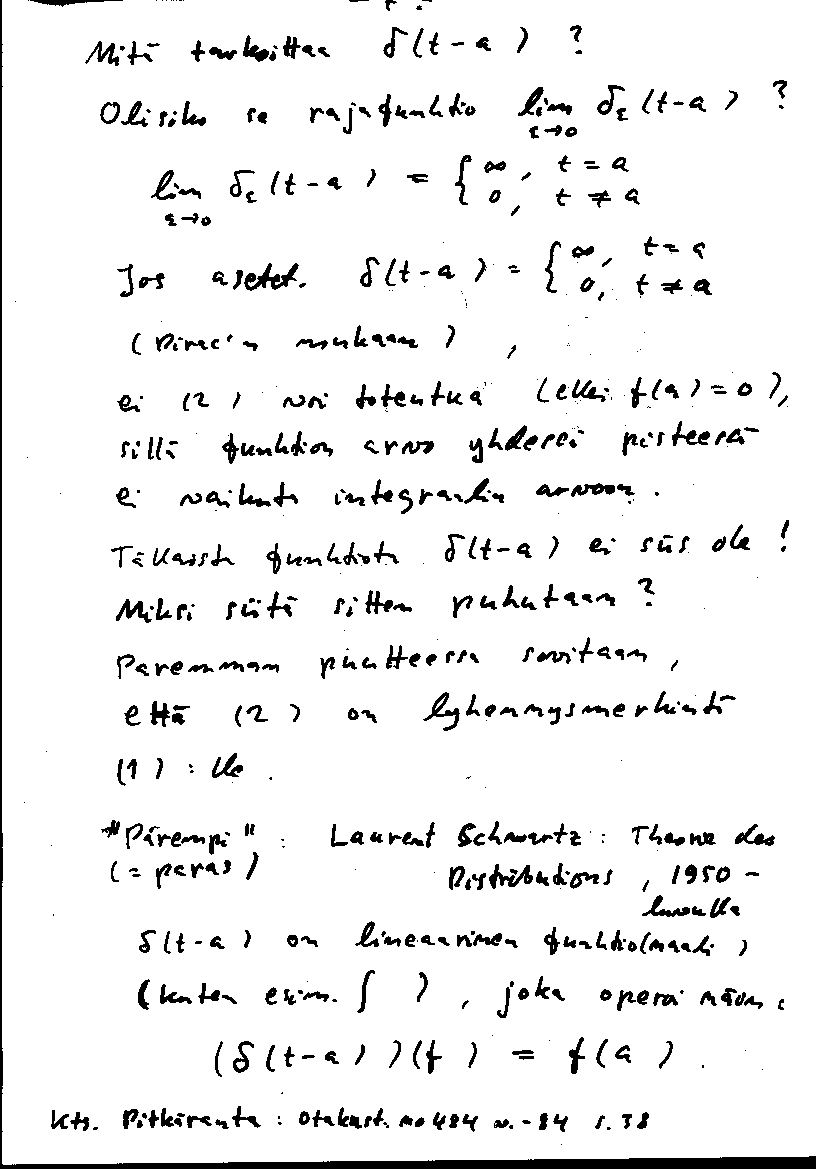 Mitä tarkoittaa δ(t-a) ?
Olisiko se rajafunktio lim δε(t-a) ?
ε→0
lim δε(t-a) = { ∞, t = a
ε→0 0, t ≠ a
Jos asetet. δ(t-a) = { ∞, t = a
0, t ≠ a
(Dirac'n mukaan) ,
ei (2) voi toteutua (ellei f(a) = 0),
sillä funktion arvo yhdessä pisteessä
ei vaikuta integraalin arvoon.
Tällaista funktiota δ(t-a) ei siis ole !
Miksi siitä sitten puhutaan ?
Paremman puutteessa sovitaan,
että (2) on lyhennysmerkintä
(1) : lle .
"Pärempi" : Laurent Schwartz : Theorie des
(= paras) Distributions , 1950 -
luvulla
δ(t-a) on lineaarinen funktio(naali)
(kuten esim. ∫ ) , joka operoi näin :
(δ(t-a))(f) = f(a) .
Kts. Pitkäranta : Otakust. no 484 v. -84 s. 38